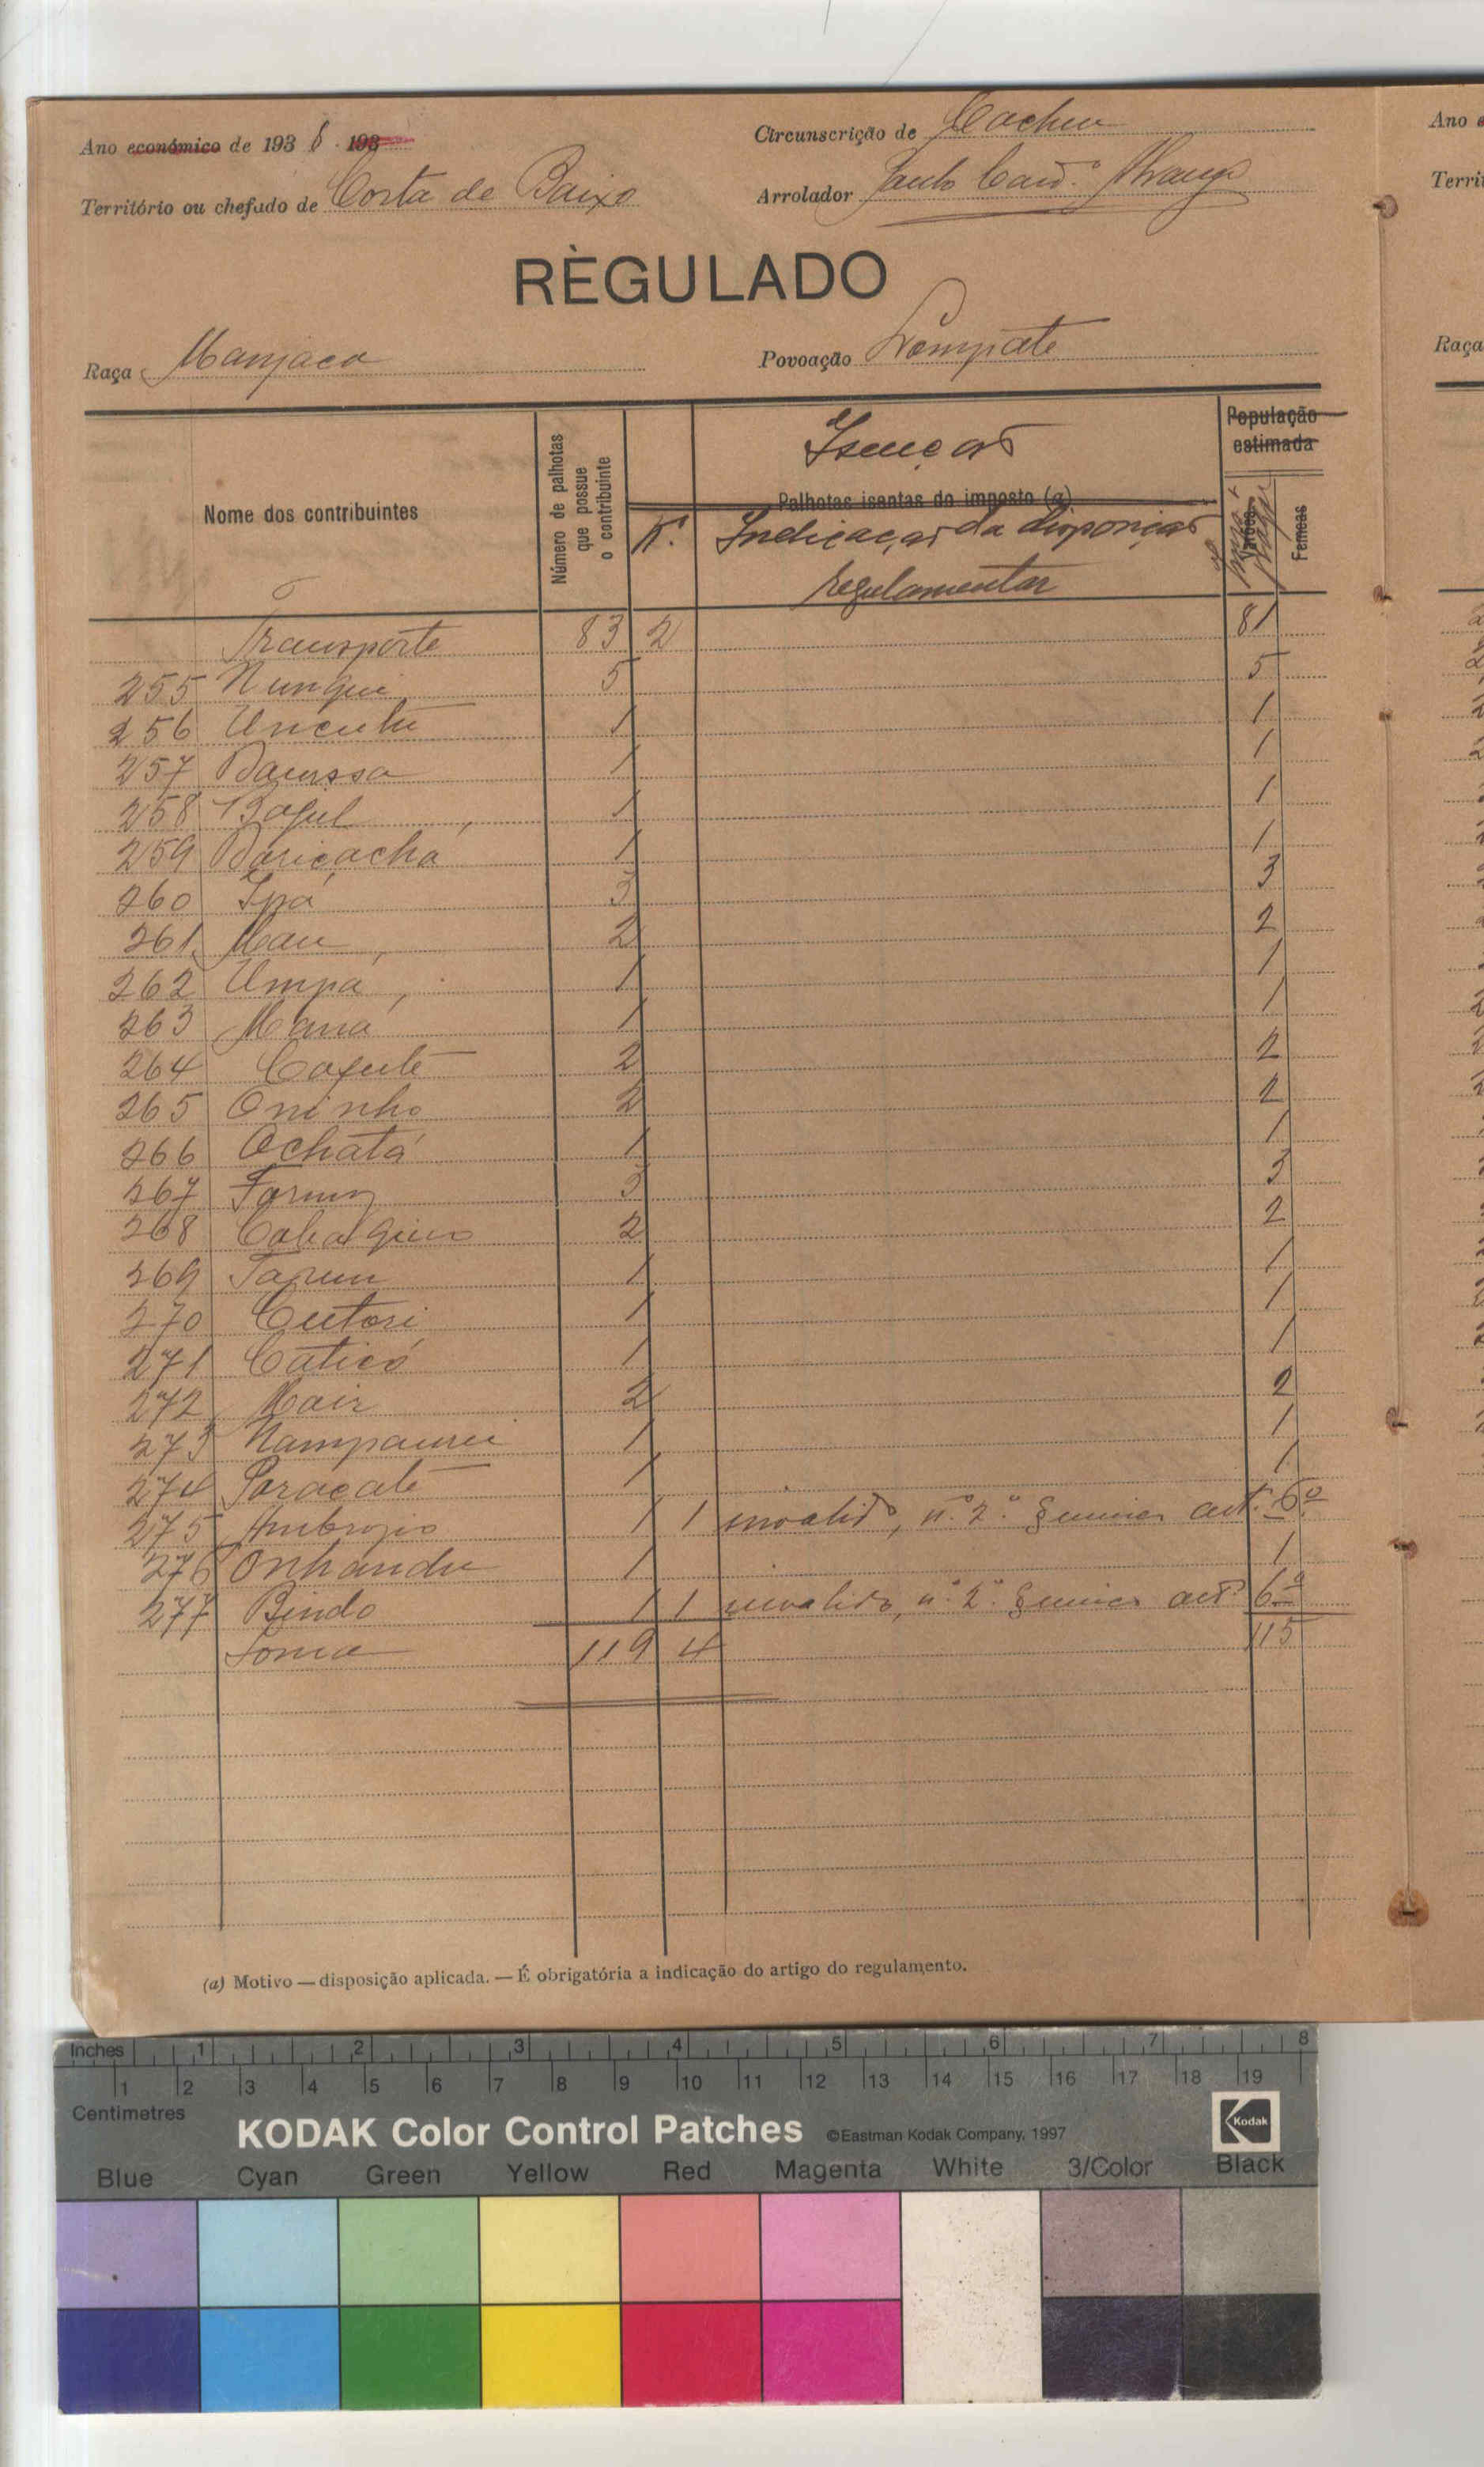 Ano económico de 1936 193
Circunscrição de Cacheu
Território ou chefado de Costa de Baixo
Arrolador
RÈGULADO
Raça Manjaca
Povoação
Nome dos contribuintes
Número de palhotas que possue o contribuinte
Isenções
Palhotas isentas do imposto (a)
N.º Indicação da disposição
regulamentar
População
estimada
Varões
Femeas
Transporte 83 2 81
255 Nunqui 5 5
256 1 1
257 Baussa 1 1
258 Bagul 1 1
259 Baricachá 1 1
260 Ipá 3 3
261 Mau 2 2
262 Umpá 1 1
263 Maná 1 1
264 Cafute 2 2
265 Oninho 2 2
266 Ochatá 1 1
267 3 3
268 2 2
269 1 1
270 Cutori 1 1
271 Caticó 1 1
272 Nair 2 2
273 1 1
274 Paracate 1 1
275 Ambrozio 1 1 invalido, n.º 2.º § unico art. 6º
276 Onhandu 1 1
277 Bindo 1 1 invalido, n.º 2.º § unico art.º 6º
Soma 119 4 115
(a) Motivo — disposição aplicada. — É obrigatória a indicação do artigo do regulamento.
Ano e
Territ
Raça
Inches 1 2 3 4 5 6 7 8
1 2 3 4 5 6 7 8 9 10 11 12 13 14 15 16 17 18 19
Centimetres
KODAK Color Control Patches ©Eastman Kodak Company, 1997 Kodak
Blue Cyan Green Yellow Red Magenta White 3/Color Black